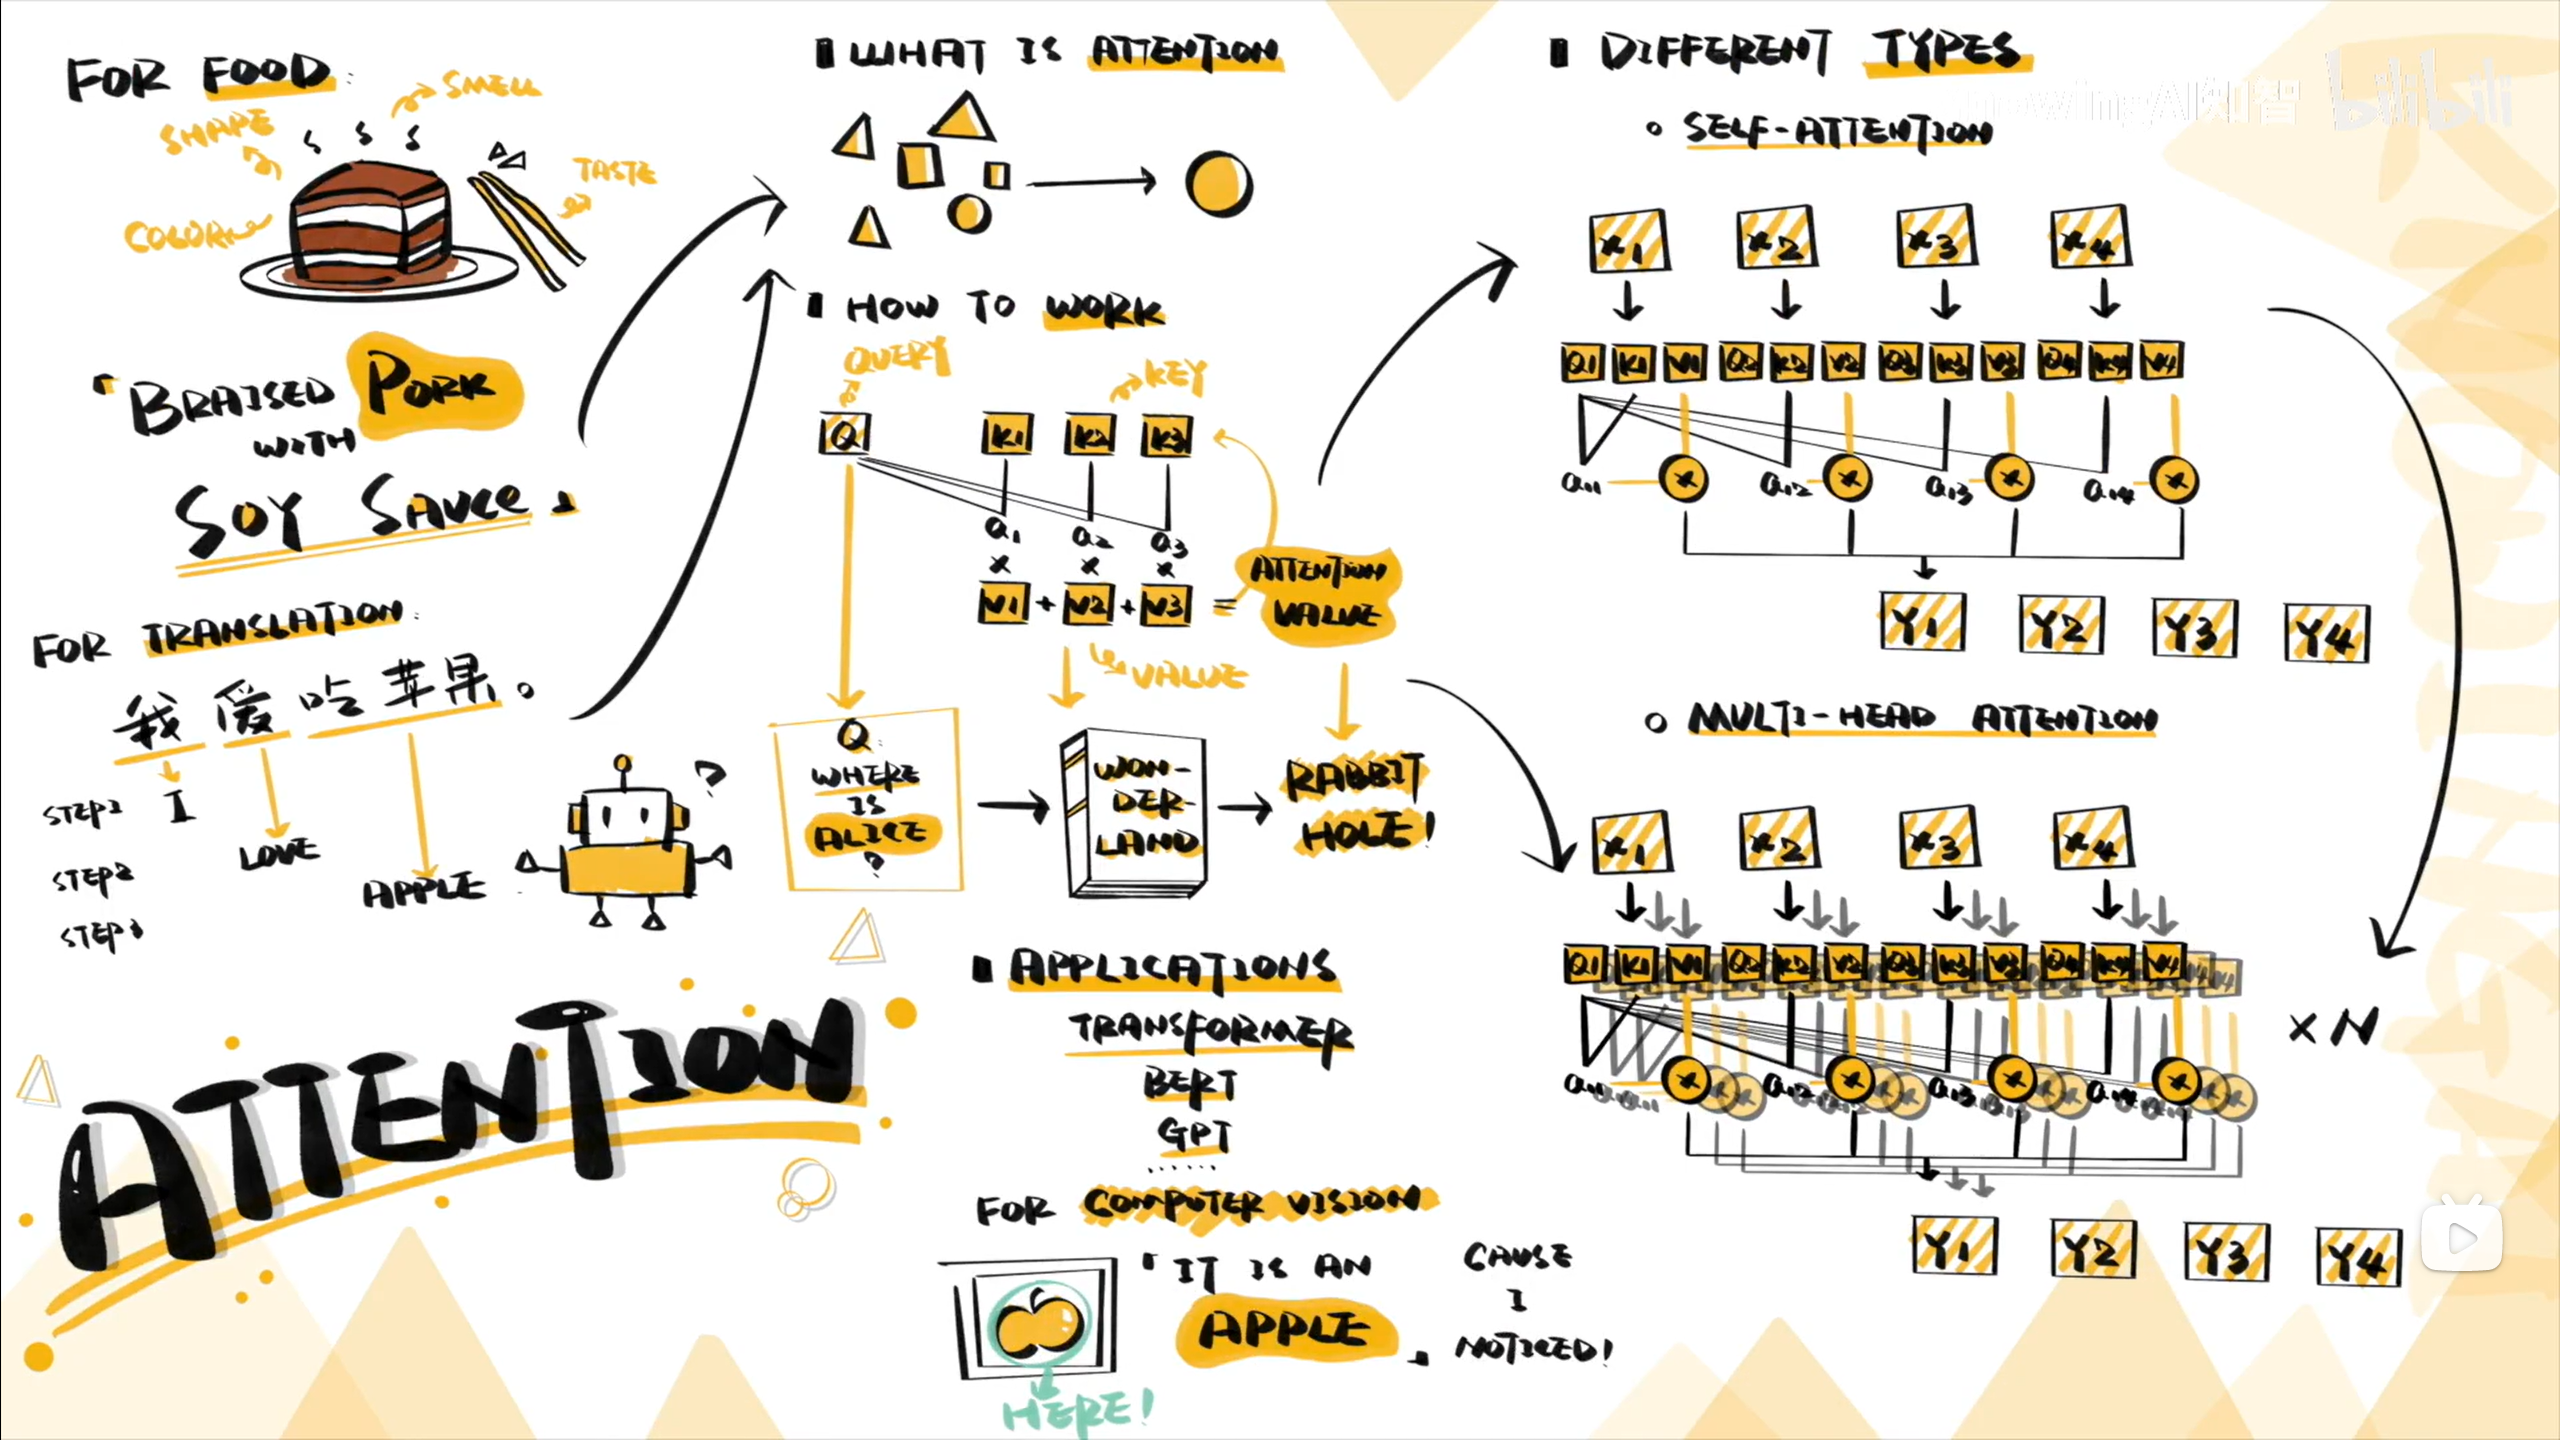 FOR FOOD:
SMELL
SHAPE
TASTE
COLOR
「BRAISED PORK
WITH
SOY SAUCE」
FOR TRANSLATION:
我爱吃苹果。
STEP1 I
LOVE
STEP2
APPLE
STEP3
ATTENTION
WHAT IS ATTENTION
HOW TO WORK
QUERY
KEY
Q K1 K2 K3
a1 a2 a3
× × ×
V1 + V2 + V3 =
ATTENTION
VALUE
VALUE
Q:
WHERE
IS
ALICE
?
WON-
DER-
LAND
RABBIT
HOLE!
?
APPLICATIONS
TRANSFORMER
BERT
GPT
......
FOR COMPUTER VISION
「IT IS AN
APPLE」
CAUSE
I
NOTICED!
HERE!
DIFFERENT TYPES
SELF-ATTENTION
x1 x2 x3 x4
Q1 K1 V1 Q2 K2 V2 Q3 K3 V3 Q4 K4 V4
a11 × a12 × a13 × a14 ×
Y1 Y2 Y3 Y4
MULTI-HEAD ATTENTION
x1 x2 x3 x4
Q1 K1 V1 Q2 K2 V2 Q3 K3 V3 Q4 K4 V4
×N
a11 × a12 × a13 × a14 ×
Y1 Y2 Y3 Y4
AI知智 bilibili